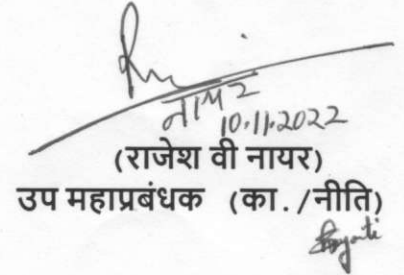 नायर
10.11.2022
(राजेश वी नायर)
उप महाप्रबंधक (का./नीति)